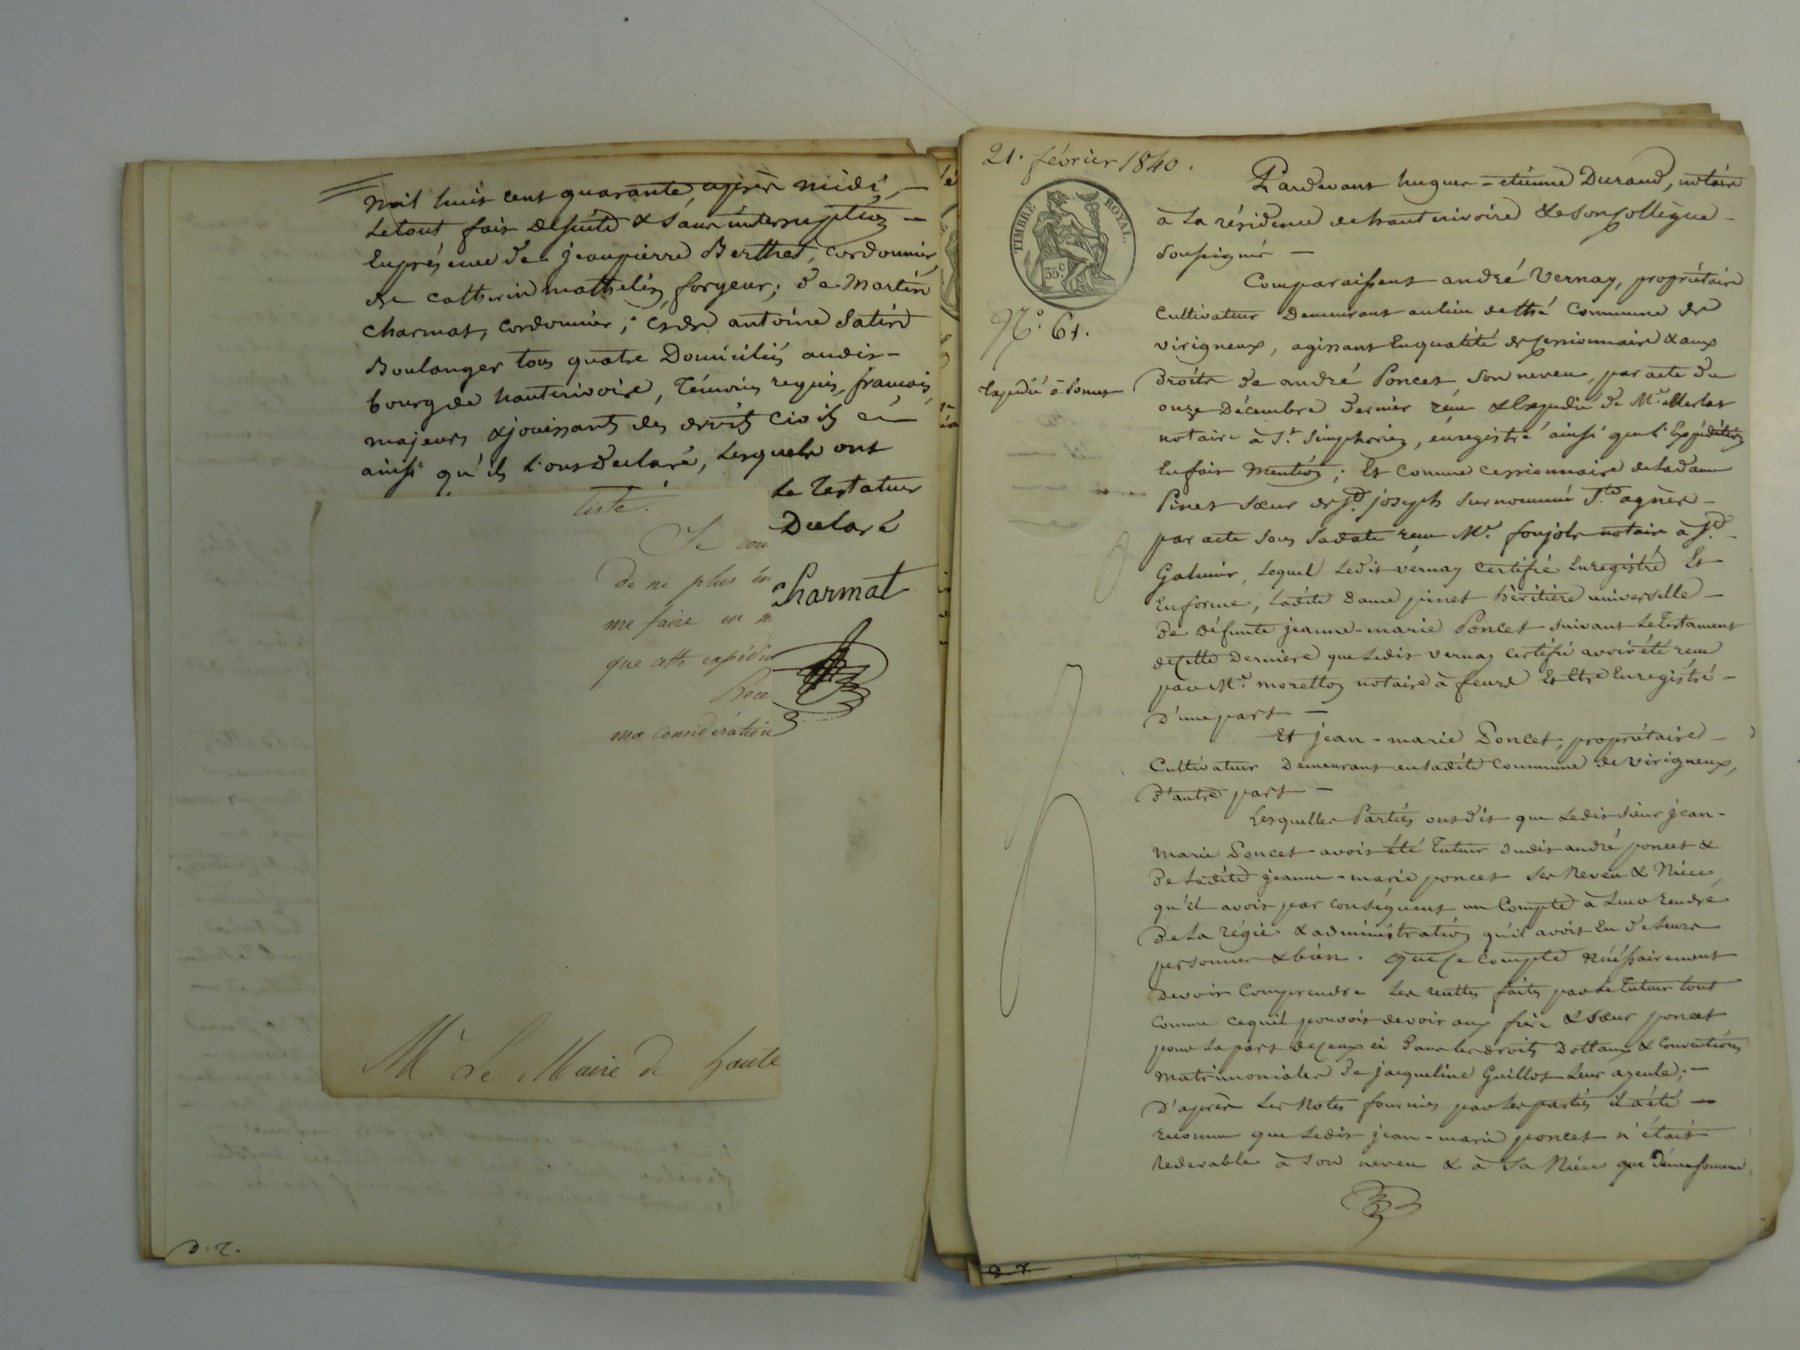 mil huit cent quarante, après midi, —
Le tout fait de suite & sans interruption —
En présence de jeanpierre Berthet, cordonnier,
de catherin mathelin forgeur; de Martin
charmat, cordonnier; et de antoine Satin
Boulanger tous quatre Domiciliés audit —
bourg de hauterivoire, témoins requis, français,
majeurs & jouissants des droits civils
ainsi qu'ils l'ont declaré, Lesquels ont
Le testateur
Declaré
Charmat
liste.
Je
de ne plus
me faire en
que cette
ma considération
Mr Le Maire de haute
D. 2.
21. février 1840.
TIMBRE ROYAL.
35c
N.° 61.
Expédié à Poncet
Pardevant hugues = etienne Durand, notaire
à La résidence de hauterivoire & de son collègue —
soussigné —
Comparaissent andré Vernay, propriétaire
Cultivateur Demeurant au lieu de thé Commune de
virigneux, agissant En qualité de cessionnaire & aux
Droits de andré Poncet son neveu, par acte du
onze Décembre dernier reçu & Expédié de Me Merlat
notaire à St. Simphorien, enregistré ainsi que l'Expédition
En fait mention; Et comme cessionnaire de la dame
Pinet sœur de St. joseph surnommé Ste agnès —
par acte sous sa date reçu Me. foujols notaire à St. —
Galmier, Lequel Ledit vernay certifié Enregistré Et
En forme, Ladite dame pinet héritière universelle —
de défunte jeanne-marie Poncet suivant Le Testament
de cette dernière que Ledit vernay certifié avoir été reçu
par Me. moretton notaire à feurs Et Etre Enregistré —
D'une part —
Et jean-marie Poncet, propriétaire —
Cultivateur Demeurant en Ladite Commune de virigneux,
D'autre part —
Lesquelles Parties ont dit que Ledit sieur jean-
marie Poncet avoit été Tuteur dudit andré poncet &
de Ladite jeanne-marie poncet ses Neveu & Nièce,
qu'il avoit par conséquent un Compte à Leur rendre
de La régie & administration qu'il avoit Eu de Leurs
personnes & bien. que ce compte nécessairement
devoit Comprendre Les recettes faites par Le Tuteur tout
comme ce qu'il pouvoit devoir aux frère & sœur poncet
pour La part de ceux ci dans les droits Dottaux & Conventions
matrimoniales de jacqueline Guillot Leur ayeule; —
D'après Les Notes fournies par Les parties il a été —
reconnu que Ledit jean-marie poncet n'était
redevable à Son neveu & à Sa Nièce que d'une somme